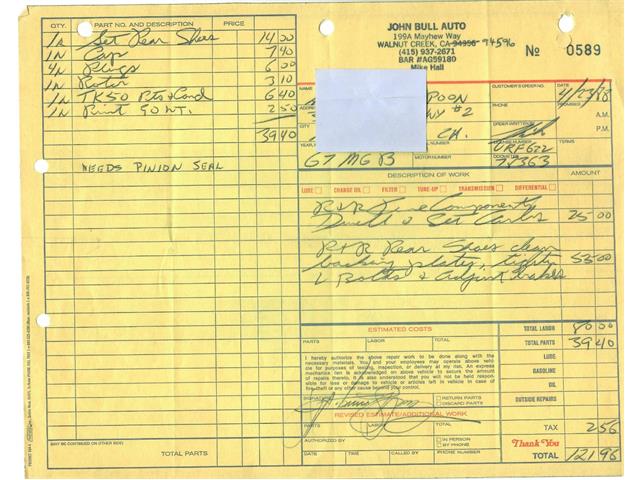 QUAN. PART NO. AND DESCRIPTION PRICE
1a Set Rear Shoes 14 00
1N Cap 7 40
4N Plugs 6 00
1N Rotor 3 10
1N TK50 Pts & Cond 6 40
1N Print 90 WT. 2 50
39 40
NEEDS PINION SEAL
JOHN BULL AUTO
199A Mayhew Way
WALNUT CREEK, CA 94596 94596
(415) 937-2671
BAR #AG59180
Mike Hall
No 0589
NAME
POON
CUSTOMER'S ORDER NO.
DATE
4/23/88
ADDRESS
WY #2
PHONE
A.M.
CITY
CA.
ORDER WRITTEN BY
P.M.
LICENSE NUMBER
URF622
TERMS
67 MGB
MOTOR NUMBER
ODOMETER
78363
DESCRIPTION OF WORK AMOUNT
LUBE CHANGE OIL FILTER TUNE-UP TRANSMISSION DIFFERENTIAL
R&R Tune Components
Dwell & Set Carbs 25 00
R&R Rear Shoes clean
backing plates, tighten
L Bolts & Adjust brakes 55 00
ESTIMATED COSTS
PARTS LABOR TOTAL
I hereby authorize the above repair work to be done along with the necessary materials. You and your employees may operate above vehicle for purposes of testing, inspection, or delivery at my risk. An express mechanics lien is acknowledged on above vehicle to secure the amount of repairs thereto. It is also understood that you will not be held responsible for loss or damage to vehicle or articles left in vehicle in case of fire, theft or any other cause beyond your control.
SIGNATURE
RETURN PARTS
DISCARD PARTS
REVISED ESTIMATE/ADDITIONAL WORK
PARTS LABOR TOTAL
AUTHORIZED BY
IN PERSON
BY PHONE
DATE TIME CALLED BY PHONE NUMBER
TOTAL LABOR 80 00
TOTAL PARTS 39 40
LUBE
GASOLINE
OIL
OUTSIDE REPAIRS
TAX 2 56
Thank You
TOTAL 121 96
MAY BE CONTINUED ON OTHER SIDE
TOTAL PARTS